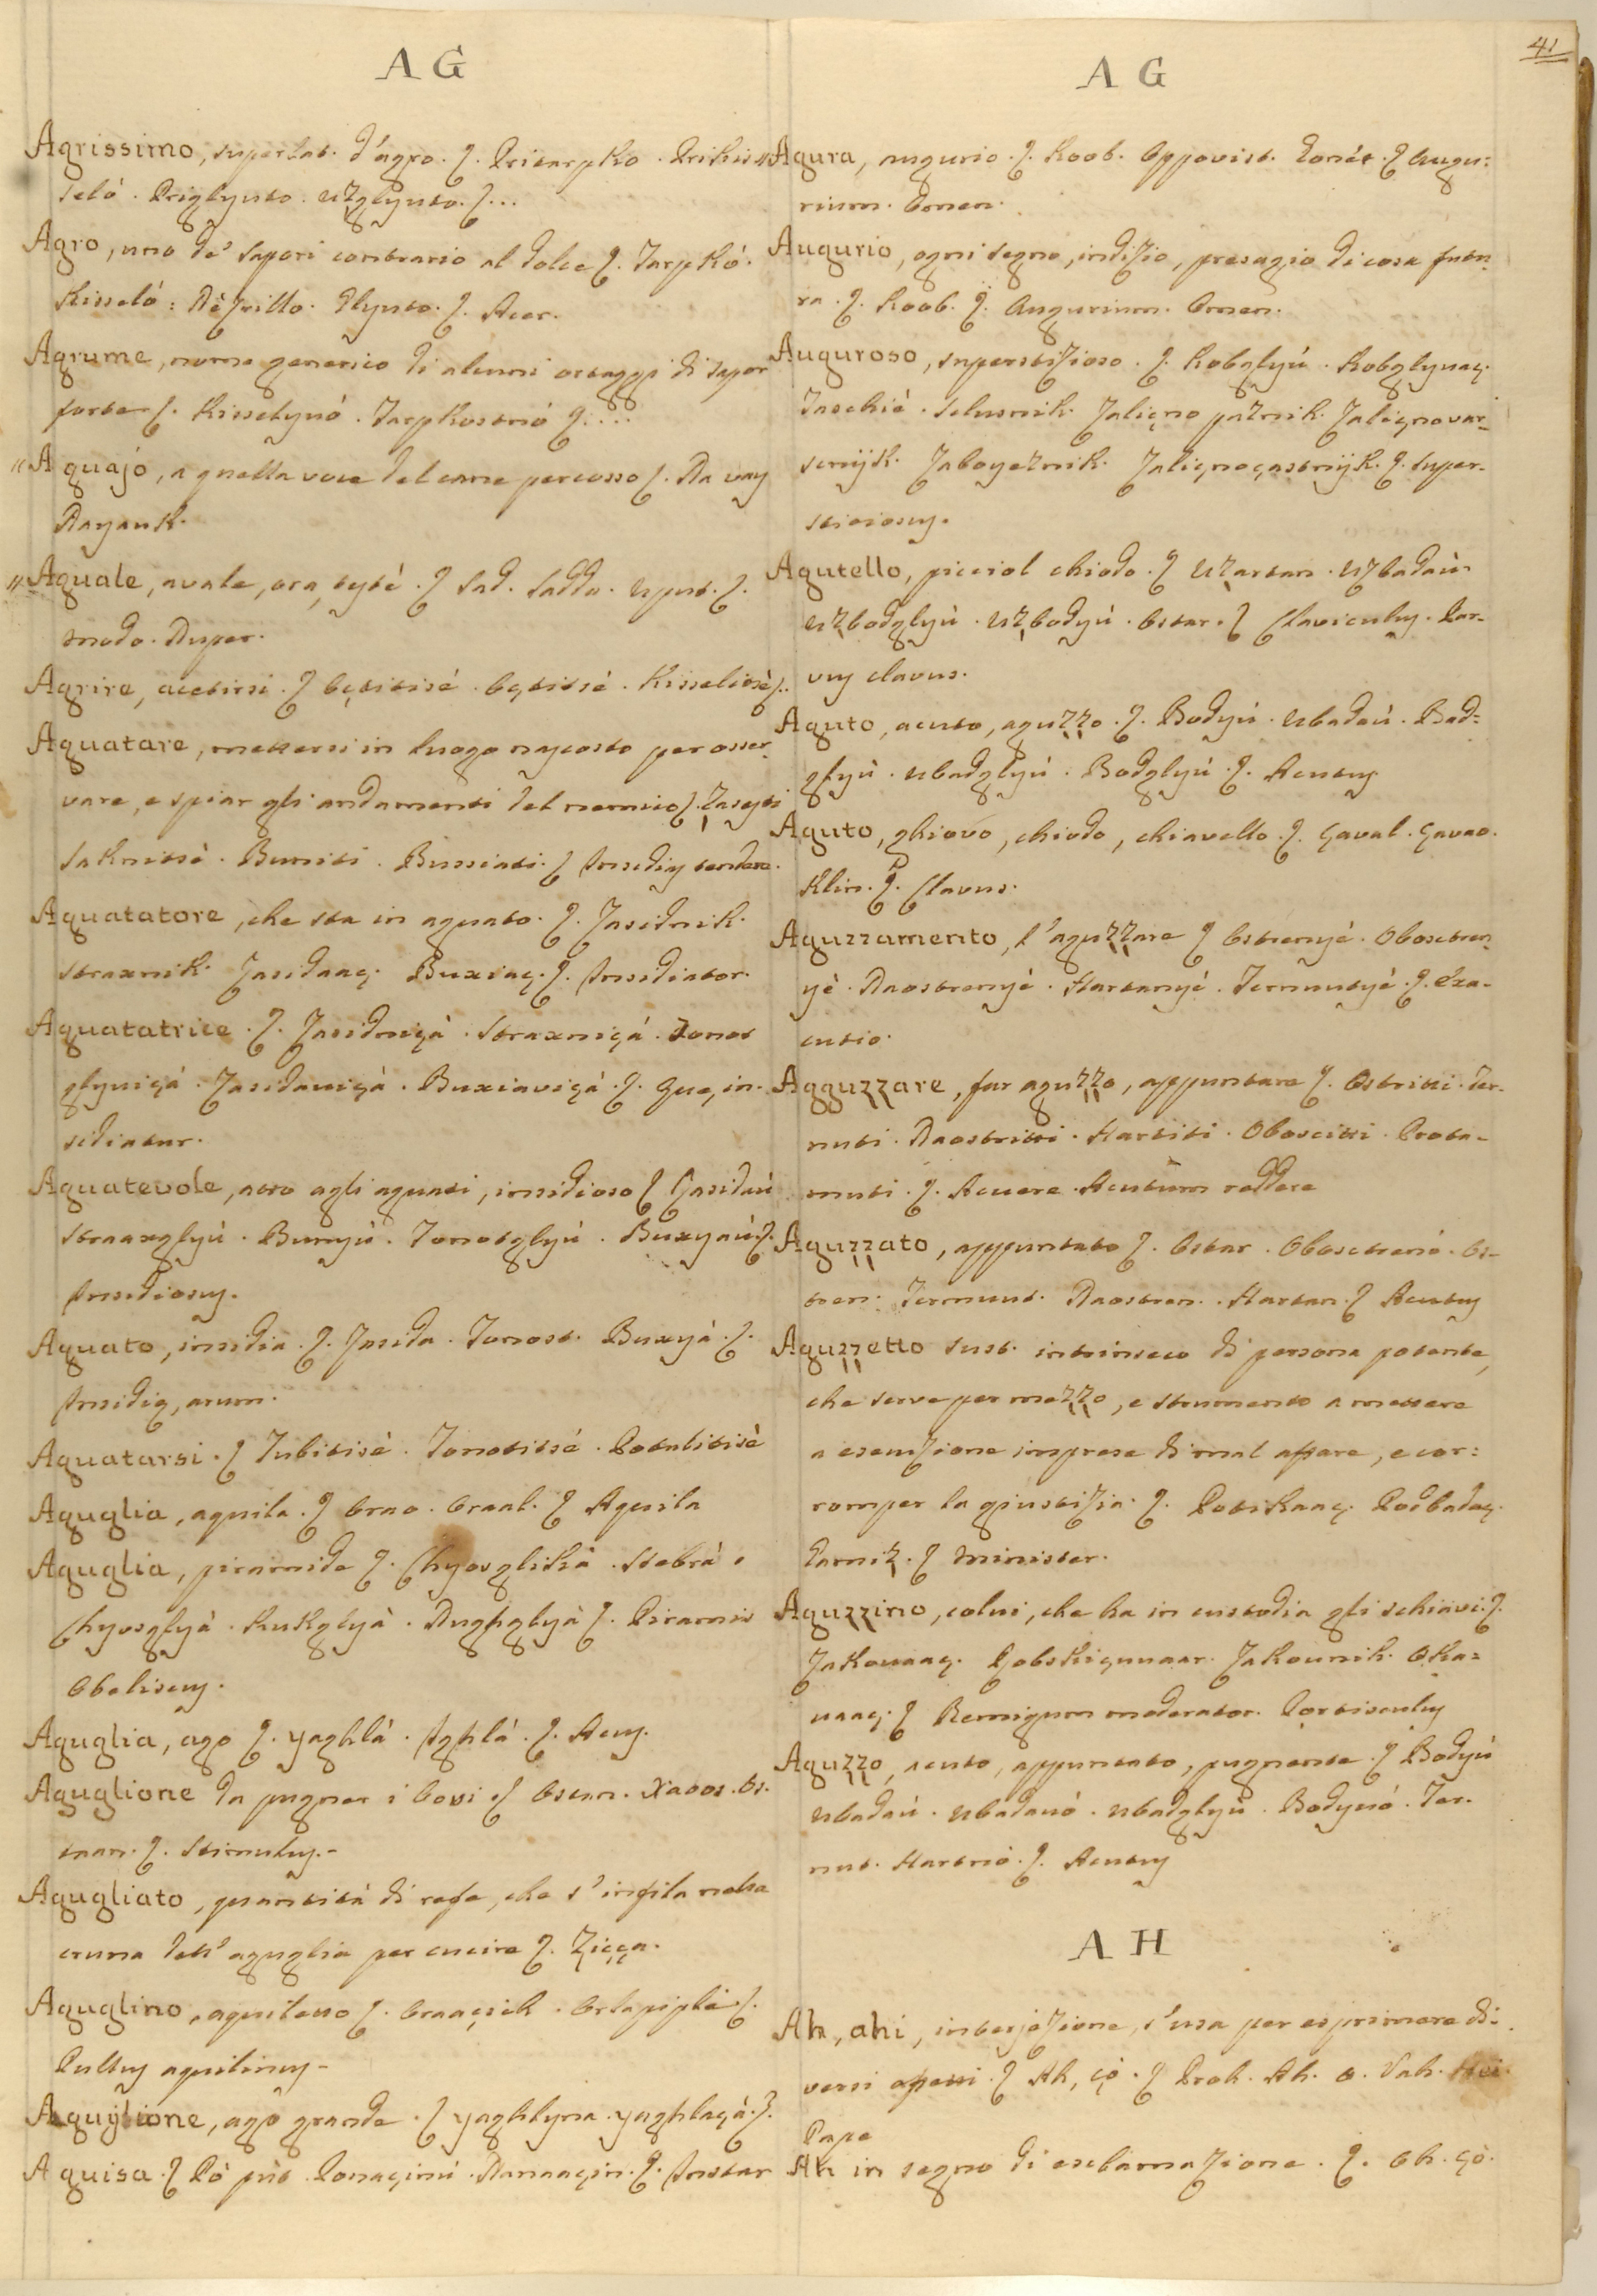 41
A G
Agrissimo, superlat. d'agro. ʃ. Pritarpko. Prikis
seló. Priglyuto. uzglyuto. ʃ...
Agro, uno de' sapori contrario al dolce ʃ. Tarpkó.
Kisseló: Rèzvillo. Glyuto. ʃ. Acer.
Agrume, nome generico di alcuni ortaggi di sapor
forte ʃ. Kisselynó. Tarpkostnó ʃ....
"Aguajo, a quella voce del cane percosso ʃ. Na vay
Nayauk.
"Aguale, avale, ora, testè. ʃ Sad. Saddu. uput. ʃ.
modo. Nuper.
Agrire, acetirsi. ʃ Oçtitisé. Oçtitsé. Kisseliosè ʃ..
Aguatare, mettersi in luogo nascosto per osser
vare, e spiar gli andamenti del nemico ʃ. Zasesti
Saknitsè. Buniti. Bussiati. ʃ Insidias tendere.
Aguatatore, che sta in aguato. ʃ. Zasidnik.
straxnik. Zasidaaç. Buxiaç. ʃ. Insidiator.
Aguatatrice. ʃ. Zasidniçà. Straxniçà. Tonot
glyniçá. Zasidauiçà. Buxiaviçà. ʃ. Que, in-
sidiatur.
Aguatevole, atto agli aguati, insidioso ʃ Zasidaú
straaxglyú. Bunyú. Tonotglyú. Buxyaú ʃ.
Insidiosus.
Aguato, insidia. ʃ. Zasida. Tonost. Buxyà. ʃ.
Insidię, arum.
Aguatarsi. ʃ Tubitisè. Tonotitsé. Potulitisè
Aguglia, aquila. ʃ Orao. Oraal. ʃ Aquila
Aguglia, piramide ʃ. Chyosglikià. Stebrà.
Chyosglyà. Kukglyà. Dughglyà ʃ. Piramis
Obeliscus.
Aguglia, ago ʃ. yaghlà. Ighlá. ʃ. Acus.
Aguglione da pugner i bovi ʃ Oscan. Xaoos. Os-
taan. ʃ. Stimulus.-
Agugliato, quantità di refe, che s'infila nella
cruna dell'aguglia per cucire ʃ. Ziçça.
Aguglino, aquilotto ʃ. Oraaçsich. Orlapiplié ʃ.
Pullus aquilinus-
Aguglione, ago grande. ʃ yaghlyna. yaghlaçà. ʃ.
Aguisa. ʃ Pò pùt. Ponaçinú. Nanaaçin. ʃ. Instar
A G
"Agura, augurio. ʃ. Koob. Oppovist. Zonét. ʃ Augu:
rium. Omen.
Augurio, ogni segno, indizio, presagio di cosa futu-
ra. ʃ. Koob. ʃ. Augurium. Omen.
Auguroso, superstizioso. ʃ. Kobglyú. Kobglynaç.
Taschié. Slusnik. Zaliçno pàznik. Zaliçnovar-
scnijk. Zaboyeznik. Zaliçnoçastnijk. ʃ. Super-
stitiosus.
Agutello, picciol chiodo. ʃ uzartan. uzbadaù.
uzbodglyú. uzbodyú. Ostar. ʃ Claviculus. Par-
vus clavus.
Aguto, acuto, aguzzo. ʃ. Bodyú. ubadaú. Bad-
glyù. ubadglyú. Bodglyú. ʃ. Acutus
Aguto, ghiovo, chiodo, chiavello. ʃ. Çaval. Çavao.
Klin. ʃ. Clavus.
Aguzzamento, l'aguzzare ʃ Ostrenyé. Oboscтren
yè. Naostrenyé. Hartanyé. Ternutyé. ʃ. Exa-
cutio.
Agguzzare, far aguzzo, appuntare ʃ. Ostritti. Ter-
nuti. Naostritti. Hartiti. Oboscitti. Prota-
rnuti. ʃ. Acuere. Acutum reddere
Aguzzato, appuntato ʃ. Ostar. Obosctrenó. Os-
tren. Ternunt. Naostren. Hartan. ʃ Acutus
Aguzzetto sust. intrinseco di persona potente,
che serve per mezzo, e strumento a mettere
a esecuzione imprese di mal affare, e cor:
romper la giustizia. ʃ. Potikaaç. Podbadaç.
Parniz. ʃ Minister.
Aguzzino, colui, che ha in custodia gli schiavi. ʃ.
Zakouaaç. Robskiçuuaar. Zakounik. Oka-
uaaç. ʃ Remigum moderator. Portisculus
Aguzzo, acuto, appuntato, pugnente. ʃ Bodyú
ubadaú. ubadauó. ubadglyù. Bodyuó. Ter-
nut. Hartnó. ʃ. Acutus
A H
Ah, ahi, interjezione, s'usa per esprimere di-
versi affetti. ʃ Ah, çò. ʃ Proh. Ah. o. Vah. Hei.
Pape
Ah in segno di esclamazione. ʃ. Oh. çò.